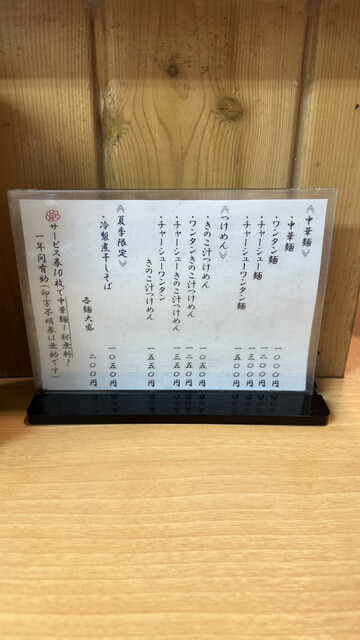 《中華麺》
・中華麺 一〇〇〇円
・ワンタン麺 一二〇〇円
・チャーシュー麺 一三〇〇円
・チャーシューワンタン麺 一五〇〇円
《つけめん》
・きのこ汁つけめん 一〇五〇円
・ワンタンきのこ汁つけめん 一二五〇円
・チャーシューきのこ汁つけめん 一三五〇円
・チャーシューワンタン
きのこ汁つけめん 一五五〇円
《夏季限定》
・冷製煮干しそば 一〇五〇円
各麺大盛 二〇〇円
サービス券10枚で中華麺1杯無料！
一年間有効（印字不明券は無効です）